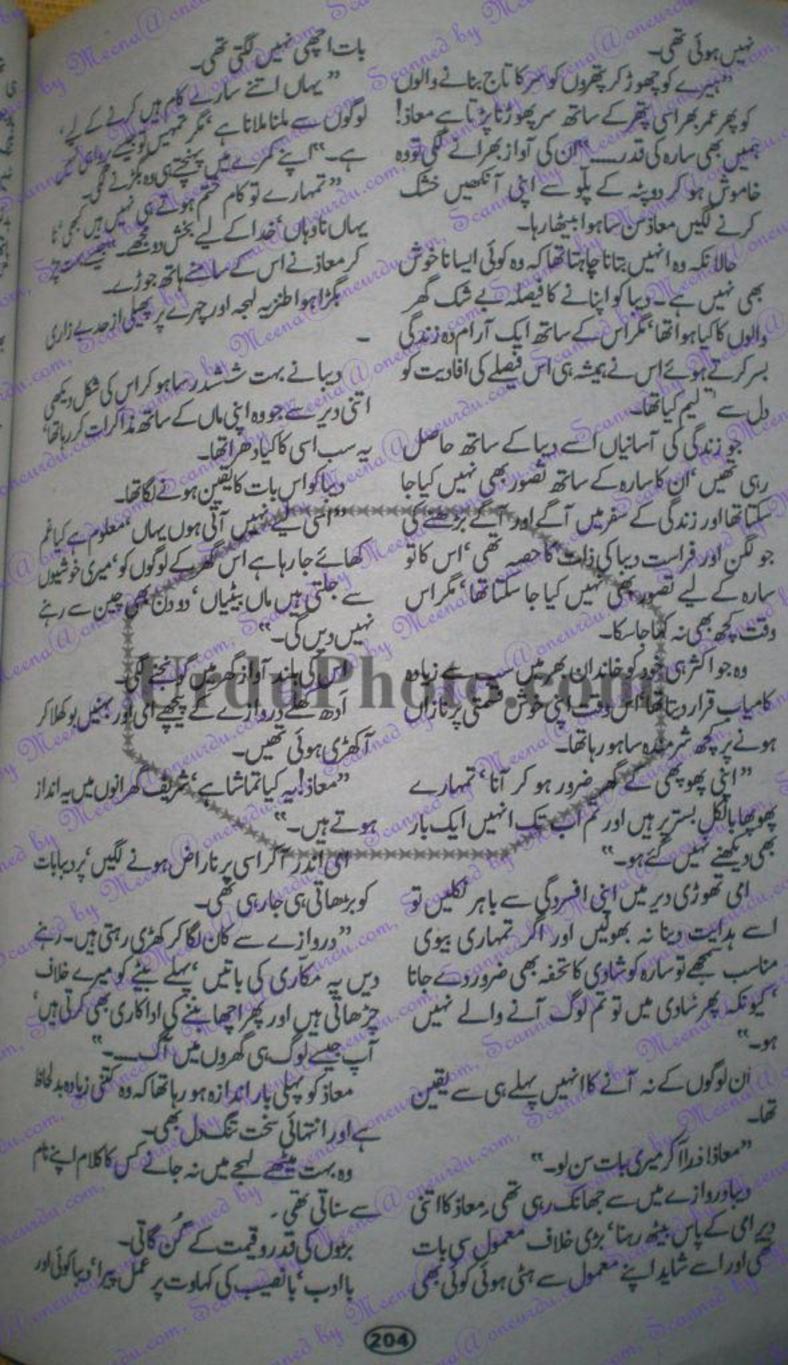 نہیں ہوئی تھی۔
”ہیرے کو چھوڑ کر پتھروں کو سر کا تاج بنانے والوں
کو پھر عمر بھر اسی پتھر کے ساتھ سر پھوڑنا پڑتا ہے معاذ!
ہمیں بھی سارہ کی قدر......“ ان کی آواز بھرانے لگی تو وہ
خاموش ہو کر دوپٹہ کے پلو سے اپنی آنکھیں خشک
کرنے لگیں معاذ سن سا ہوا بیٹھا رہا۔
حالانکہ وہ انہیں بتانا چاہتا تھا کہ وہ کوئی ایسا ناخوش
بھی نہیں ہے۔ دیبا کو اپنانے کا فیصلہ بے شک گھر
والوں کا کیا ہوا تھا، مگر اس کے ساتھ ایک آرام دہ زندگی
بسر کرتے ہوئے اس نے ہمیشہ ہی اس فیصلے کی افادیت کو
دل سے تسلیم کیا تھا۔
جو زندگی کی آسانیاں اسے دیبا کے ساتھ حاصل
رہی تھیں، ان کا سارہ کے ساتھ تصور بھی نہیں کیا جا
سکتا تھا اور زندگی کے سفر میں آگے اور آگے بڑھنے کی
جو لگن اور فراست دیبا کی ذات کا حصہ تھی، اس کا تو
سارہ کے لیے تصور بھی نہیں کیا جا سکتا تھا، مگر اس
وقت کچھ بھی نہ کہا جا سکا۔
وہ جو اکثر ہی خود کو خاندان بھر میں سب سے زیادہ
کامیاب قرار دیتا تھا، اس وقت اپنی خوش قسمتی پر نازاں
ہونے پر کچھ شرمندہ سا ہو رہا تھا۔
”اپنی پھوپھی کے گھر ضرور ہو کر آنا، تمہارے
پھوپھا بالکل بستر پر ہیں اور تم اب تک انہیں ایک بار
بھی دیکھنے نہیں گئے ہو۔“
امی تھوڑی دیر میں اپنی افسردگی سے باہر نکلیں تو
اسے ہدایت دینا نہ بھولیں اور اگر تمہاری بیوی
مناسب سمجھے تو سارہ کو شادی کا تحفہ بھی ضرور دے جانا
، کیونکہ پھر شادی میں تو تم لوگ آنے والے نہیں
ہو۔“
ان لوگوں کے نہ آنے کا انہیں پہلے ہی سے یقین
تھا۔
”معاذ! ذرا آ کر میری بات سن لو۔“
دیبا دروازے میں سے جھانک رہی تھی۔ معاذ کا اتنی
دیر امی کے پاس بیٹھ رہنا، بڑی خلاف معمول سی بات
تھی اور اسے شاید اپنے معمول سے ہٹی ہوئی کوئی بھی
بات اچھی نہیں لگتی تھی۔
”یہاں اتنے سارے کام ہیں کرنے کے لیے،
لوگوں سے ملنا ملانا ہے، مگر تمہیں تو جیسے پروا ہی نہیں
ہے۔“ اپنے کمرے میں پہنچتے ہی وہ بگڑنے لگی۔
”تمہارے تو کام ختم ہوتے ہی نہیں ہیں کبھی،
یہاں تا وہاں، خدا کے لیے بخش دو مجھے۔“
کر معاذ نے اس کے سامنے ہاتھ جوڑے۔
بگڑا ہوا طنزیہ لہجہ اور چہرے پر پھیلی از حد بے زاری
۔
دیبا نے بہت ششدر سا ہو کر اس کی شکل دیکھی
اتنی دیر سے جو وہ اپنی ماں کے ساتھ مذاکرات کر رہا تھا،
یہ سب اسی کا کیا دھرا تھا۔
دیبا کو اس بات کا یقین ہونے لگا تھا۔
”اسی لیے نہیں آتی ہوں یہاں، معلوم ہے کیا غم
کھائے جا رہا ہے اس گھر کے لوگوں کو، میری خوشیوں
سے جلتی ہیں ماں بیٹیاں، دو دن بھی چین سے رہنے
نہیں دیں گی۔“
اس کی بلند آواز گھر میں گونجنے لگی۔
آدھ کھلے دروازے کے پیچھے امی اور بہنیں بوکھلا کر
آ کھڑی ہوئی تھیں۔
”معاذ! یہ کیا تماشا ہے، شریف گھرانوں میں یہ انداز
ہوتے ہیں۔“
امی اندر آ کر اسی پر ناراض ہونے لگیں، پر دیبا بات
کو بڑھاتی ہی جا رہی تھی۔
”دروازے سے کان لگا کر کھڑی رہتی ہیں۔ رہنے
دیں یہ مکاری کی باتیں، پہلے بیٹے کو میرے خلاف
چڑھاتی ہیں اور پھر اچھا بننے کی اداکاری بھی کرتی ہیں،
آپ جیسے لوگ ہی گھروں میں آگ......“
معاذ کو پہلی بار اندازہ ہو رہا تھا کہ وہ کتنی زیادہ بدلحاظ
ہے اور انتہائی سخت تنگ دل بھی۔
وہ بہت میٹھے لہجے میں نہ جانے کس کا کلام اپنے نام
سے سناتی تھی۔
بڑوں کی قدر و قیمت کے گُن گاتی۔
باادب، بانصیب کی کہاوت پر عمل پیرا، دیبا کوئی اور
204
UrduPhoto.com
Scanned by Meena@oneurdu.com